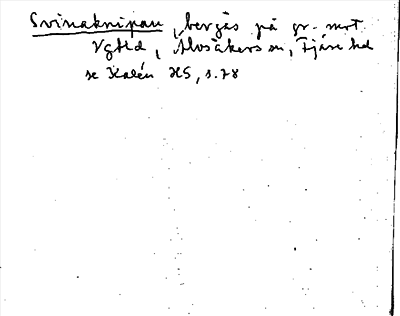 Svinaknipan, bergås på gr. mot
Vgtld, Älvsåkers sn, Fjäre hd
se Kalén HS, s. 78